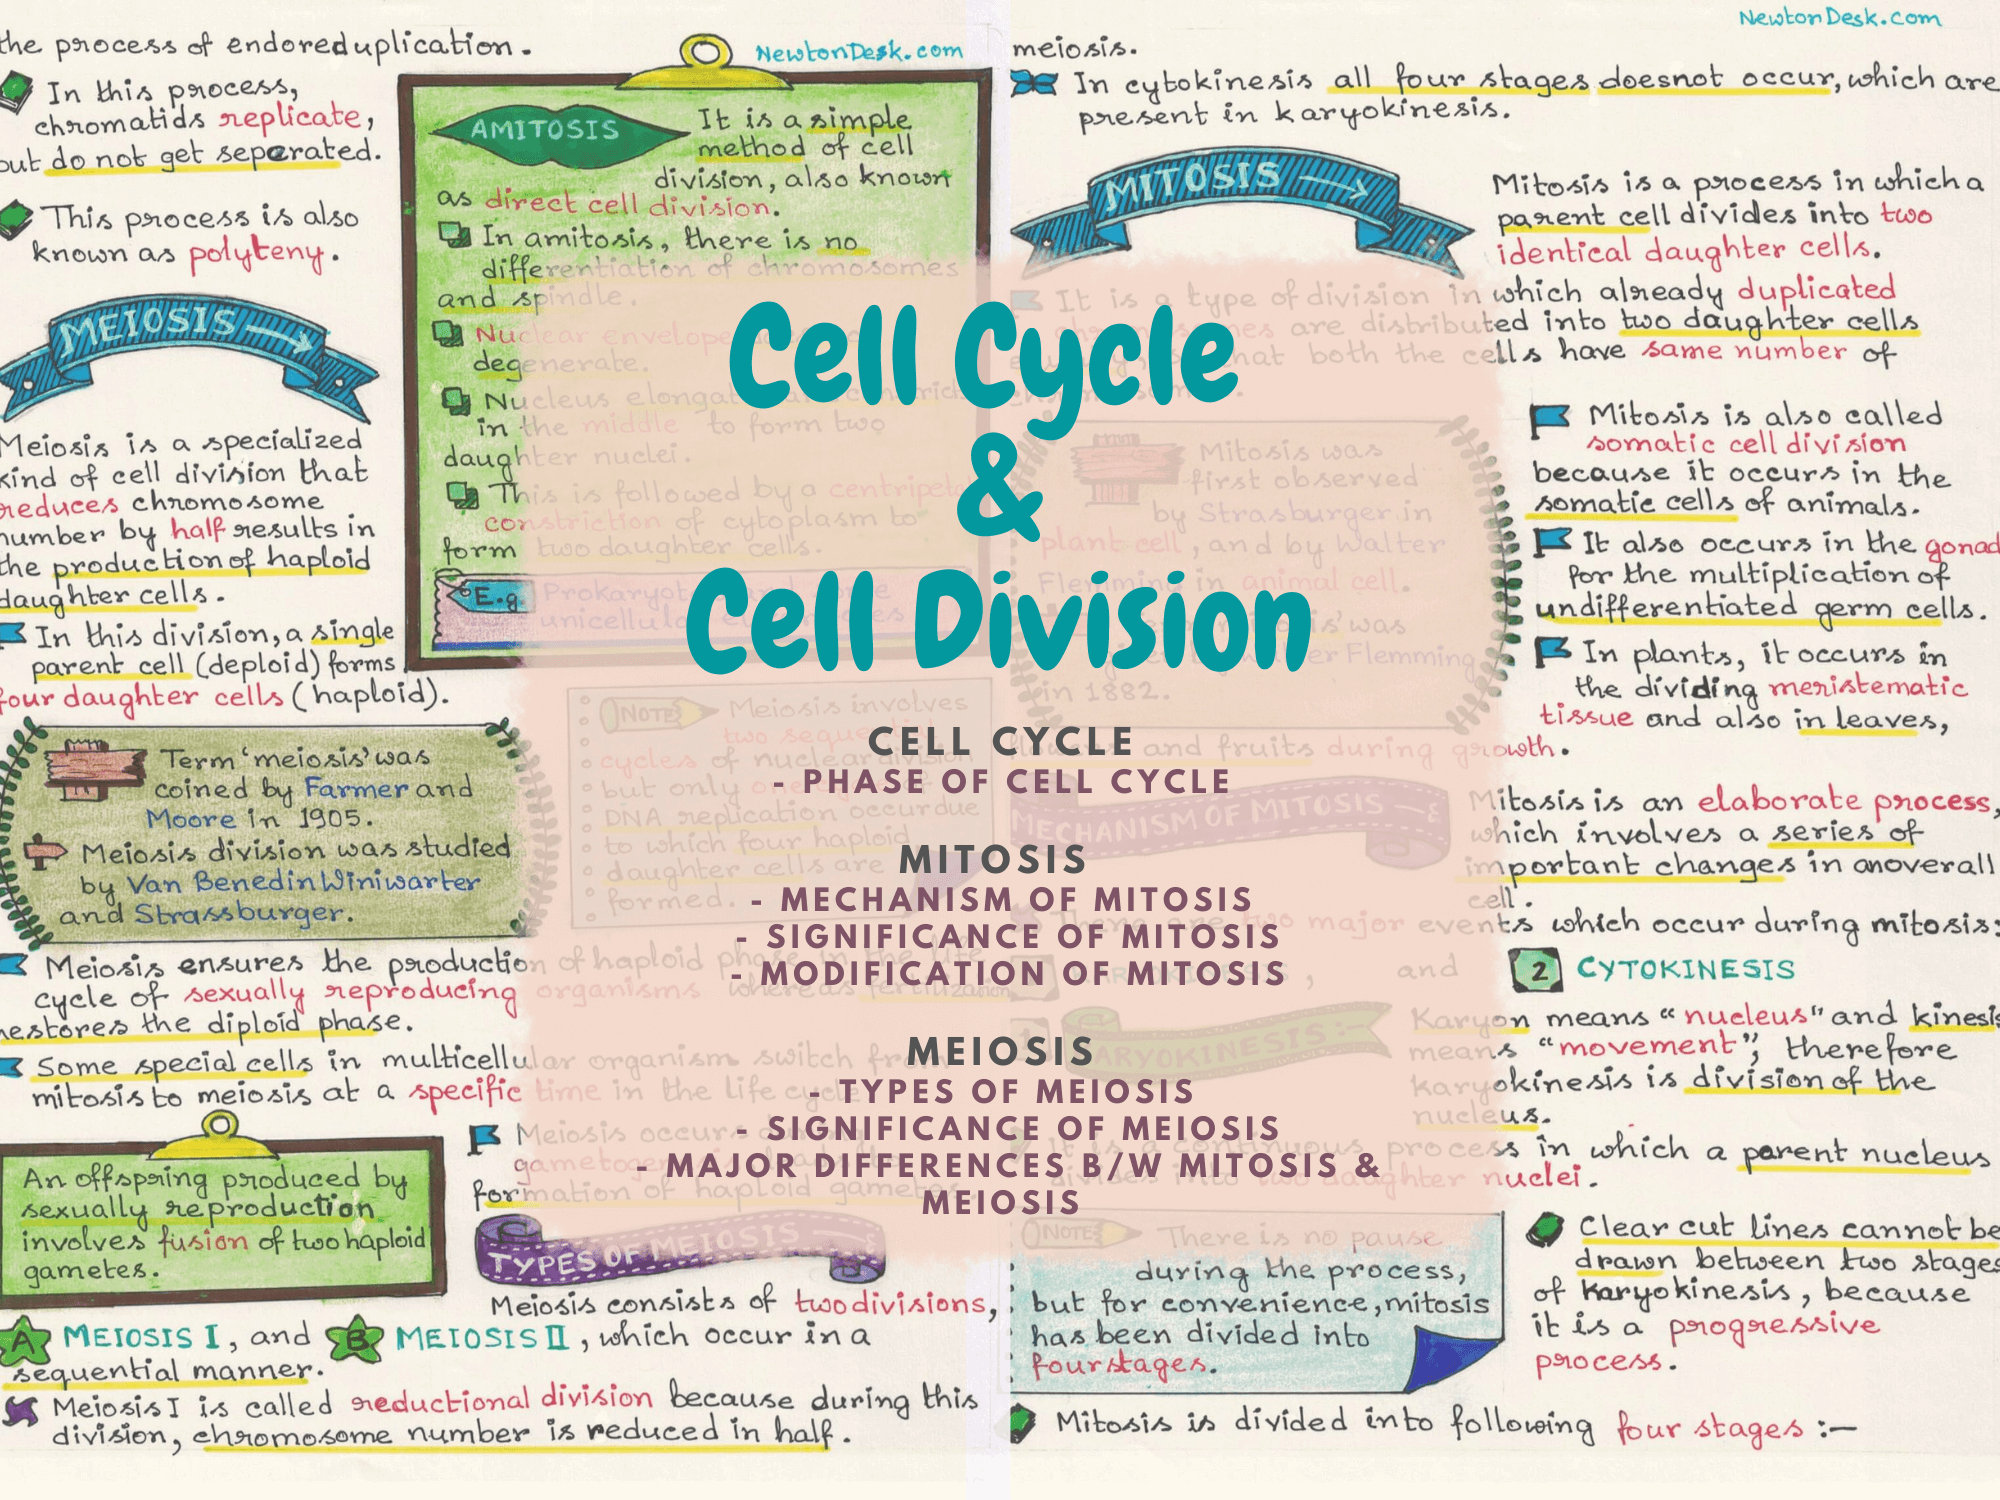 the process of endoreduplication.
In this process,
chromatids replicate,
but do not get separated.
This process is also
known as polyteny.
MEIOSIS
Meiosis is a specialized
kind of cell division that
reduces chromosome
number by half results in
the production of haploid
daughter cells.
In this division, a single
parent cell (deploid) forms
four daughter cells (haploid).
Term 'meiosis' was
coined by Farmer and
Moore in 1905.
Meiosis division was studied
by Van Benedin Winiwarter
and Strassburger.
Meiosis ensures the production of haploid phase in the life
cycle of sexually reproducing organisms whereas fertilization
restores the diploid phase.
Some special cells in multicellular organism switch from
mitosis to meiosis at a specific time in the life cycle
An offspring produced by
sexually reproduction
involves fusion of two haploid
gametes.
Meiosis occurs
formation of haploid gametes
TYPES OF MEIOSIS
Meiosis consists of two divisions,
A MEIOSIS I, and B MEIOSIS II, which occur in a
sequential manner.
Meiosis I is called reductional division because during this
division, chromosome number is reduced in half.
NewtonDesk.com
AMITOSIS
It is a simple
method of cell
division, also known
as direct cell division.
In amitosis, there is no
differentiation of chromosomes
and spindle.
Nuclear envelope
degenerate.
Nucleus
in the middle to form two
daughter nuclei.
This is followed by a
constriction of cytoplasm to
form two daughter cells.
E.g.
NOTE
Meiosis involves
two
cycles of nuclear division
but only
DNA replication occur due
to which four haploid
daughter cells are
formed.
Cell Cycle
&
Cell Division
CELL CYCLE
- PHASE OF CELL CYCLE
MITOSIS
- MECHANISM OF MITOSIS
- SIGNIFICANCE OF MITOSIS
- MODIFICATION OF MITOSIS
MEIOSIS
- TYPES OF MEIOSIS
- SIGNIFICANCE OF MEIOSIS
- MAJOR DIFFERENCES B/W MITOSIS &
MEIOSIS
NewtonDesk.com
meiosis.
In cytokinesis all four stages doesnot occur, which are
present in karyokinesis.
MITOSIS
Mitosis is a process in which a
parent cell divides into two
identical daughter cells.
It is a type of division in which already duplicated
are distributed into two daughter cells
that both the cells have same number of
Mitosis was
first observed
by Strasburger in
plant cell, and by Walter
Flemming in animal cell.
was
Flemming
in 1882.
Mitosis is also called
somatic cell division
because it occurs in the
somatic cells of animals.
It also occurs in the gonad
for the multiplication of
undifferentiated germ cells.
In plants, it occurs in
the dividing meristematic
tissue and also in leaves,
and fruits during growth.
MECHANISM OF MITOSIS
Mitosis is an elaborate process,
which involves a series of
important changes in anoverall
cell.
There are two major events which occur during mitosis:
and
2 CYTOKINESIS
KARYOKINESIS:-
Karyon means "nucleus" and kinesis
means "movement", therefore
karyokinesis is division of the
nucleus.
It is a continuous process in which a parent nucleus
divides into two daughter nuclei.
NOTE
There is no pause
during the process,
but for convenience, mitosis
has been divided into
four stages.
Clear cut lines cannot be
drawn between two stages
of karyokinesis, because
it is a progressive
process.
Mitosis is divided into following four stages :-